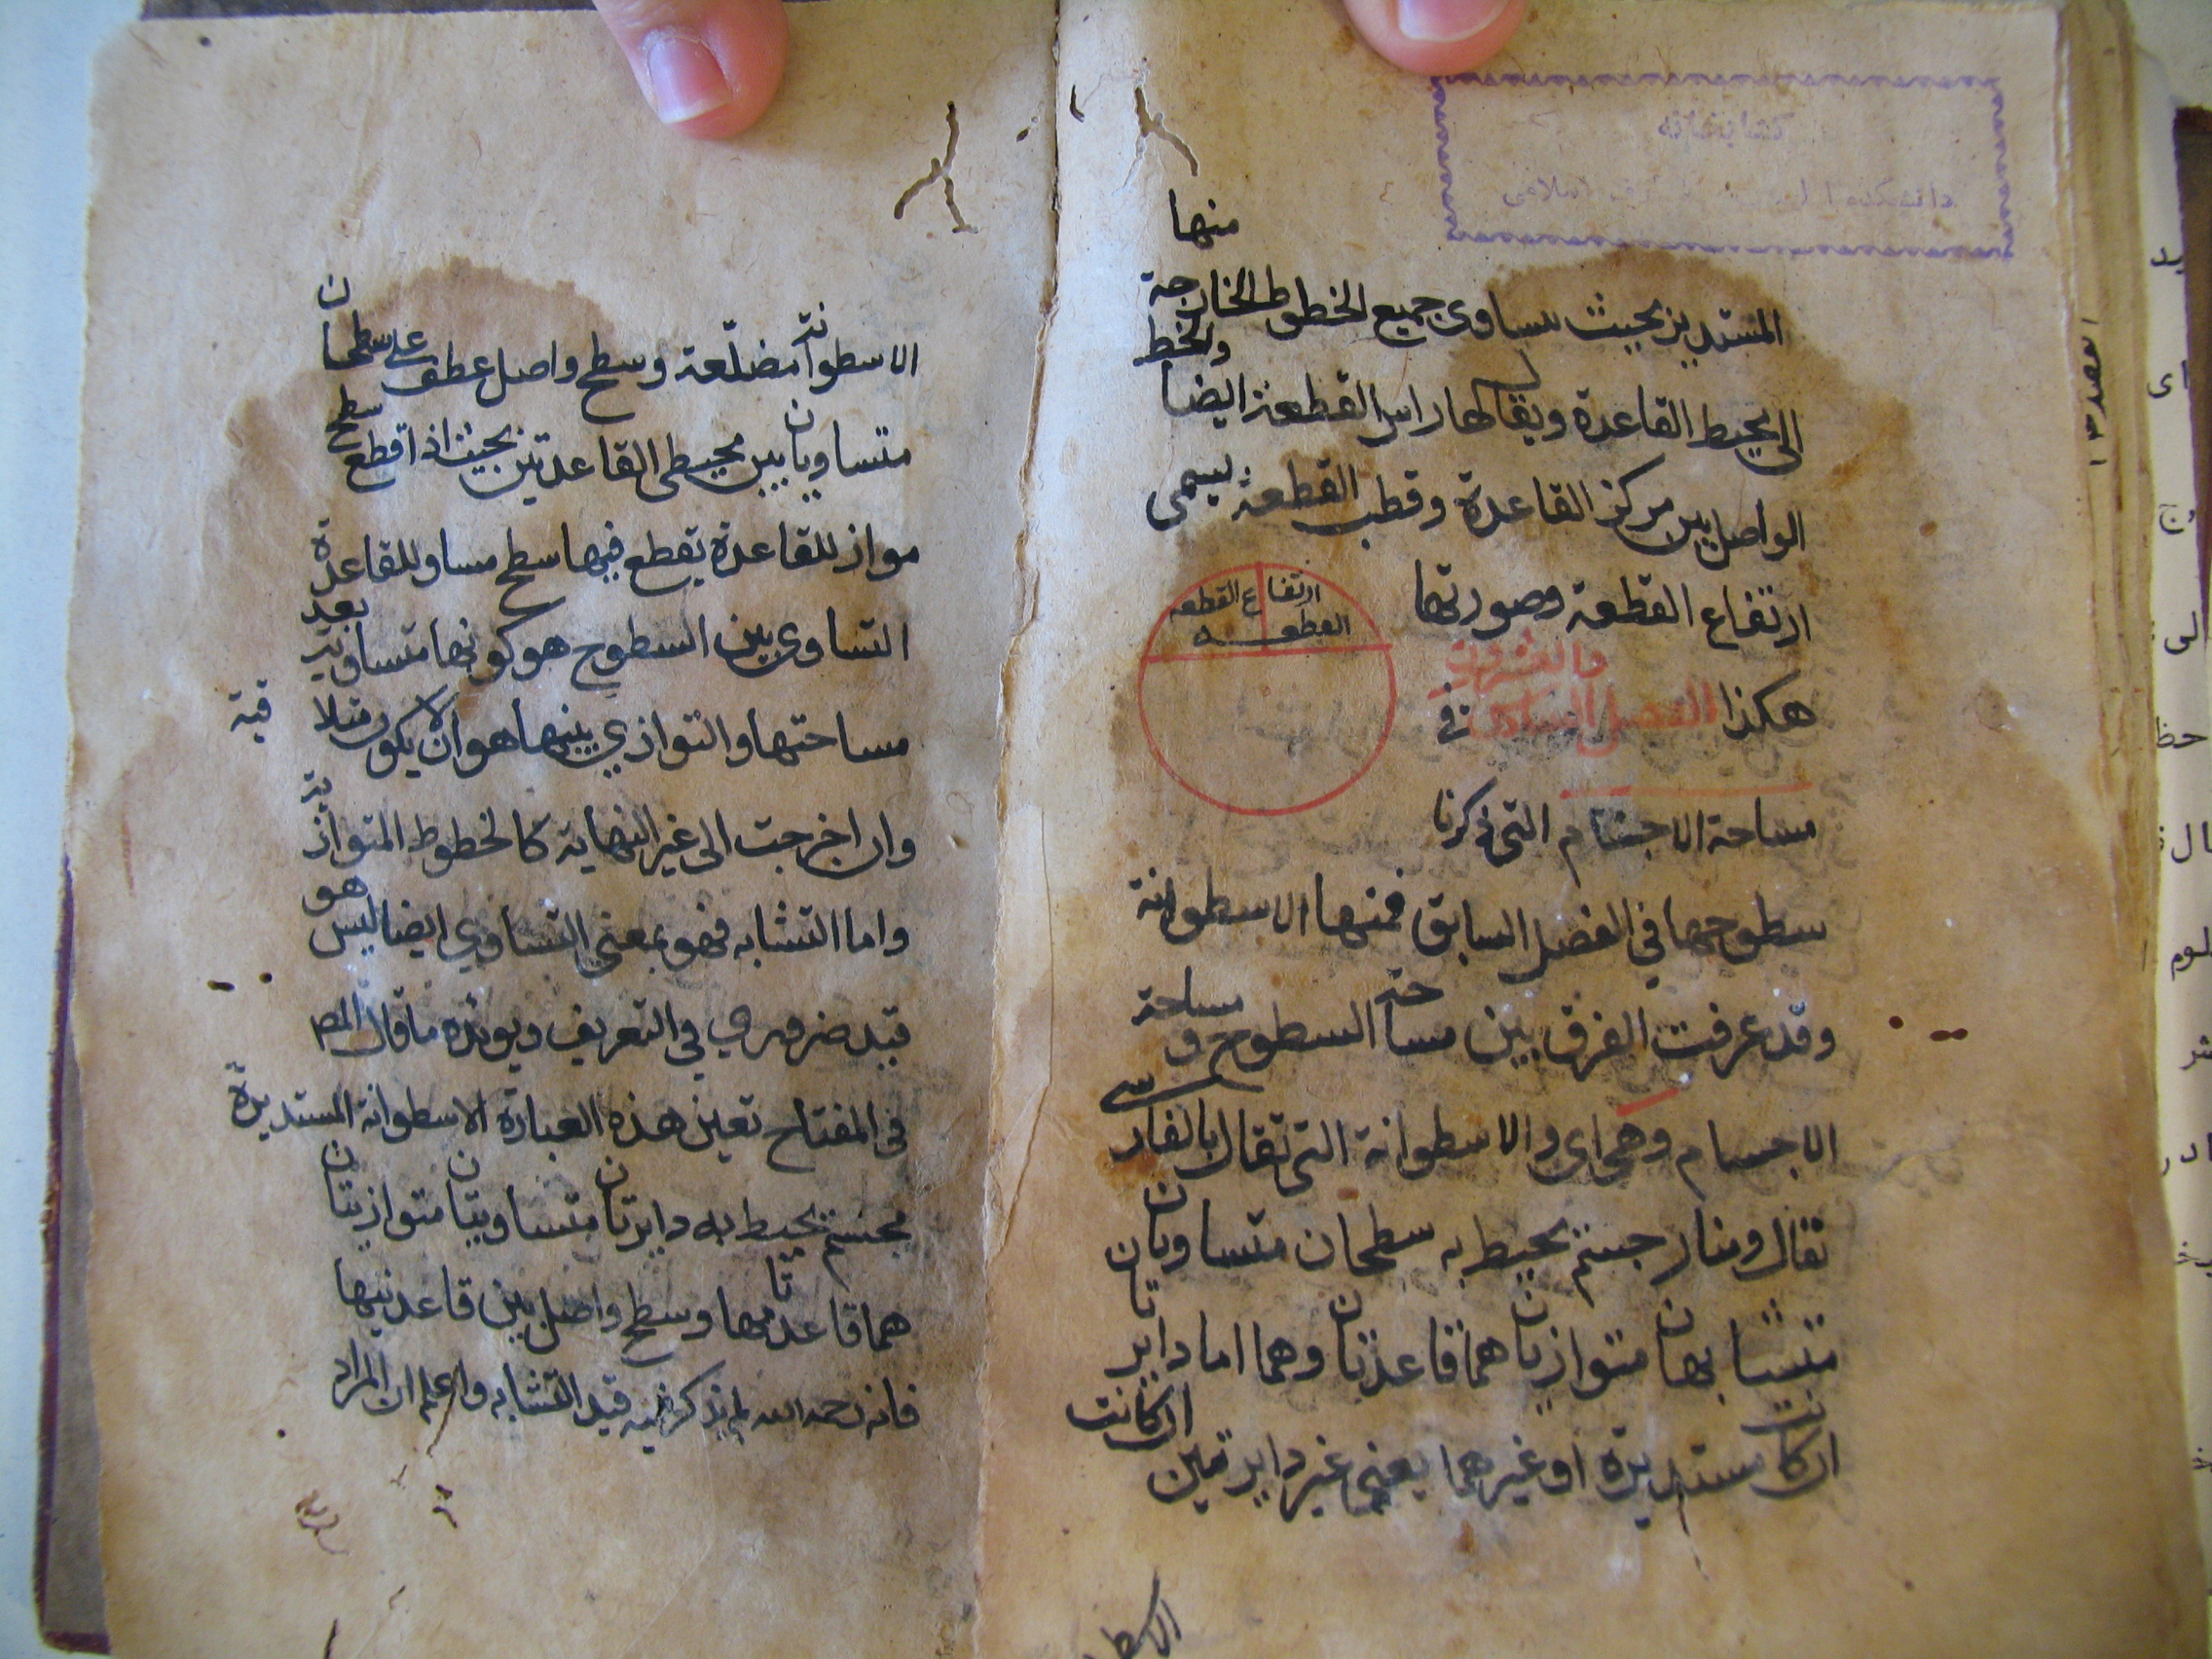 كتابخانه
منها
المستدير بحيث تساوى جميع الخطوط الخارجة
الى محيط القاعدة ويقال لها راس القطعة ايضا والخط
الواصل بين مركز القاعدة وقطب القطعة يسمى
ارتفاع القطعة وصورتها
هكذا الفصل السادس والعشرون فى
ارتفاع القطعه
القطعه
مساحة الاجسام التى ذكرنا
سطوحها فى الفصل السابق فمنها الاسطوانة
وقد عرفت الفرق بين مساحة السطوح و مساحة
الاجسام وهى اى والاسطوانة التى تقال بالفارسى
تقال ومنار جسم يحيط به سطحان متساويان
متشابهان متوازيان هما قاعدتان وهما اما دايرتان
ان كانت مستديرة او غيرهما يعنى غير دايرتين ان كانت
الاسطوانة مضلّعة وسطح واصل عطف على سطحان
متساويان بين محيطى القاعدتين بحيث اذا قطع سطح
مواز للقاعدة يقطع فيها سطح مساو للقاعدة
التساوى بين السطوح هو كونها متساوية بعد
مساحتها والتوازي بينهما هو ان لا يكون متلاقية
وان اخرجت الى غير النهاية كالخطوط المتوازية
واما التشابه فهو بمعنى التساوي ايضا ليس هو
قيد ضروري في التعريف ويويده ما قال المص
فى المفتاح تعين هذه العبارة الاسطوانة المستديرة
مجسم يحيط به دايرتان متساويتان متوازيتان
هما قاعدتاها وسطح واصل بين قاعدتيها
فانه رحمه الله لم يذكر فيه قيد التشابه واعلم ان المراد